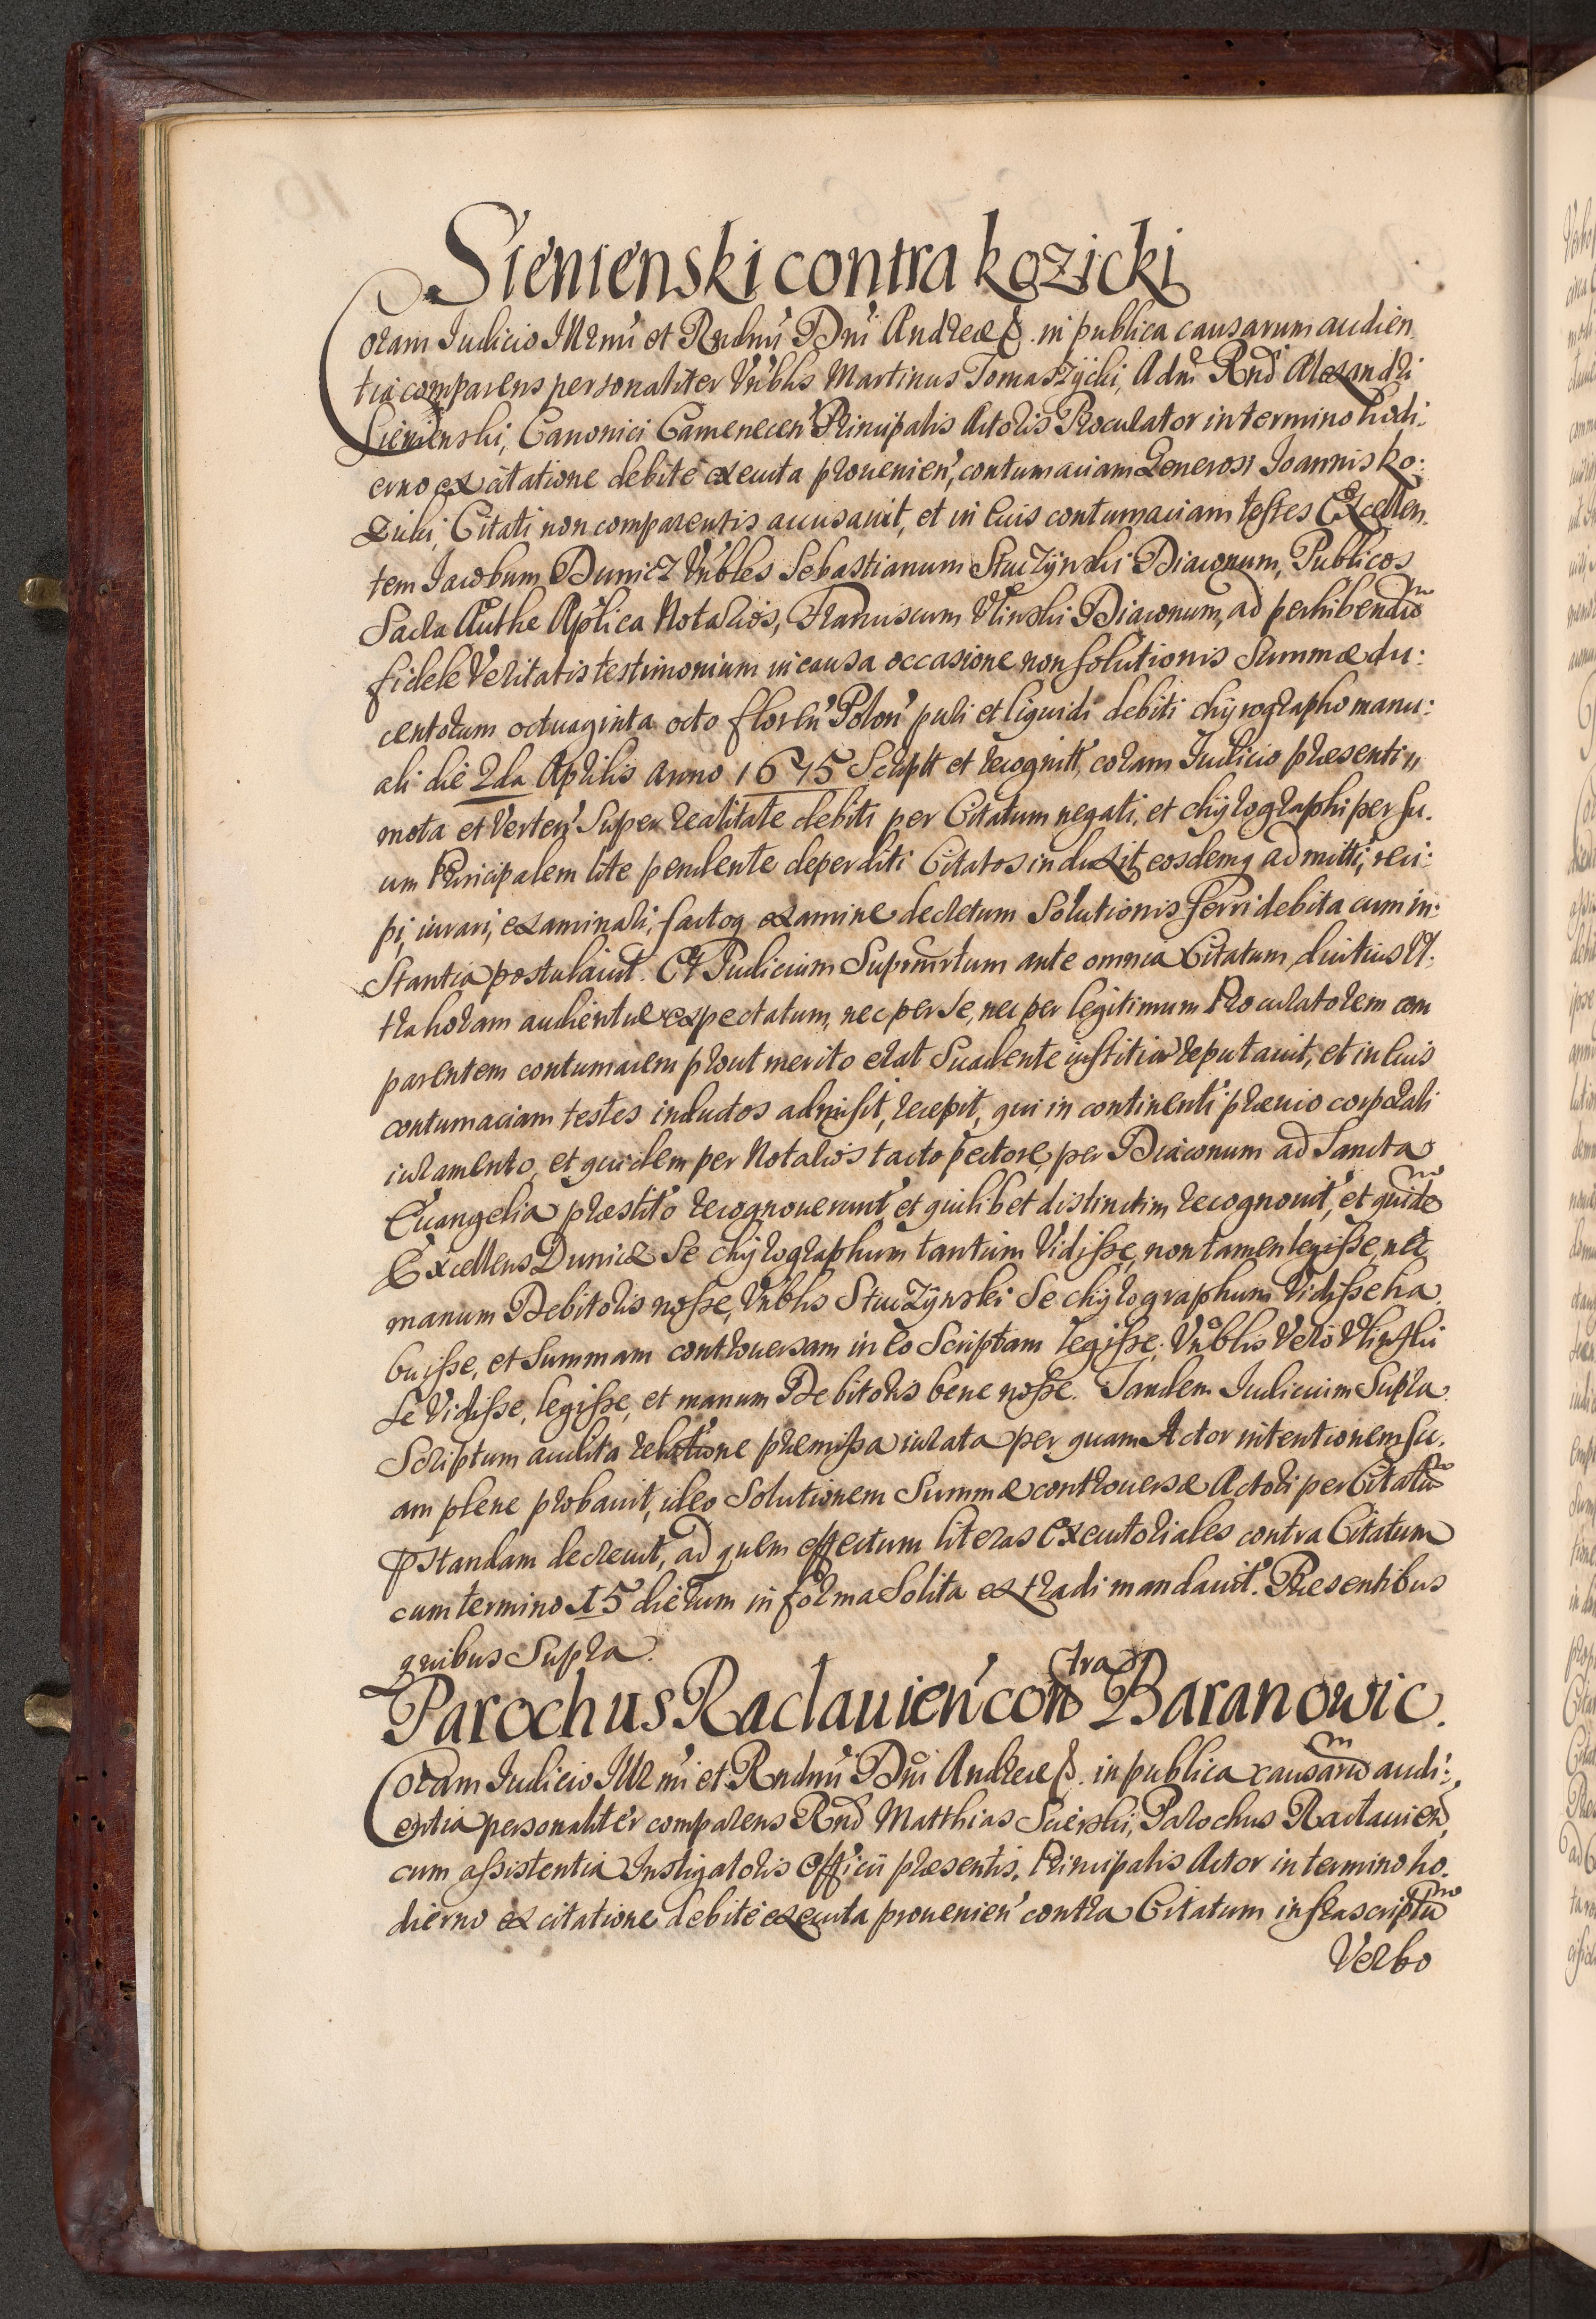 Sienienski contra kozicki
Coram Iudicio Illrmi et Rndmi Dni Andreæ p. in publica causarum audien
tia comparens personaliter Vnblis Martinus Tomaszÿcki, Adm Rnd Alexandri
Sienienski, Canonici Camenecen Principalis Actoris Procurator in termino hodi:
erno ex citatione debite executa prouenien, contumaciam Generosi Ioannis ko:
zicki, Citati non comparentis accusauit, et in euis contumaciam testes Excellen
tem Iacobum Dunicz Vnbles Sebastianum Stuczÿnski Diaconum, Publicos
Sacra Authe Aplica Notarios, Franciscum Vlinski Diaconum, ad perhibendu
fidele Veritatis testimonium in causa occasione non solutionis Summæ du:
centorum octuaginta octo floren Polon puri et liquidi debiti chÿrographo manu:
ali die 2da Aprilis Anno 1675 Script et recognitt, coram Iudicio præsenti
mota et Verten Super realitate debiti per Citatum negati, et chÿrographi per su.
um Principalem lite pendente deperditi Citatos induxit, eosdemq admitti, reci:
pi, iurari, examinari, factoq examine decretum Solutionis ferri debita cum in:
stantia postulauit. Et Iudicium Suprascrtum ante omnia Citatum diutius Vl:
tra horam audientiæ expectatum, nec per se, nec per legitimum Procuratorem com
parentem contumacem prout merito erat Suadente iustitia reputauit, et in euis
contumaciam testes inductos admisit, recepit, qui in continenti præuio corporali
iuramento, et quidem per Notarios tacto pectore, per Diaconum ad Sancta
Euangelia præstito recognouerunt et quilibet distinctim recognouit, et quide
Excellens Dunicz Se chÿrographum tantum Vidisse, non tamen legisse, nec
manum Debitoris nosse, Vnblis Stuczÿnski Se chÿrographum Vidisse ha
buisse, et Summam controuersam in eo Scriptam legisse, Vnblis Vero Vlinski
Se Vidisse, legisse, et manum Debitoris bene nosse. Tandem Iudicium Supra
Scriptum audita relatione præmissa iurata per quam Actor intentionem su.
am plene probauit, ideo Solutionem Summæ controuersæ Actori per Citatu
pstandam decreuit, ad quem effectum literas Executoriales contra Citatum
cum termino 15 dierum in forma Solita extradi mandauit. Præsentibus
quibus Supra.
Parochus Raclauien contra Baranowic.
Coram Iudicio Illrmi et Rndmi Dni Andreæ p. in publica causaru audi:
entia personaliter comparens Rnd Matthias Scierski, Parochus Raclauien,
cum assistentia Instigatoris Officii præsentis, Principalis Actor in termino ho.
dierno ex citatione debite executa prouenien contra Citatum infrascriptu
Verbo